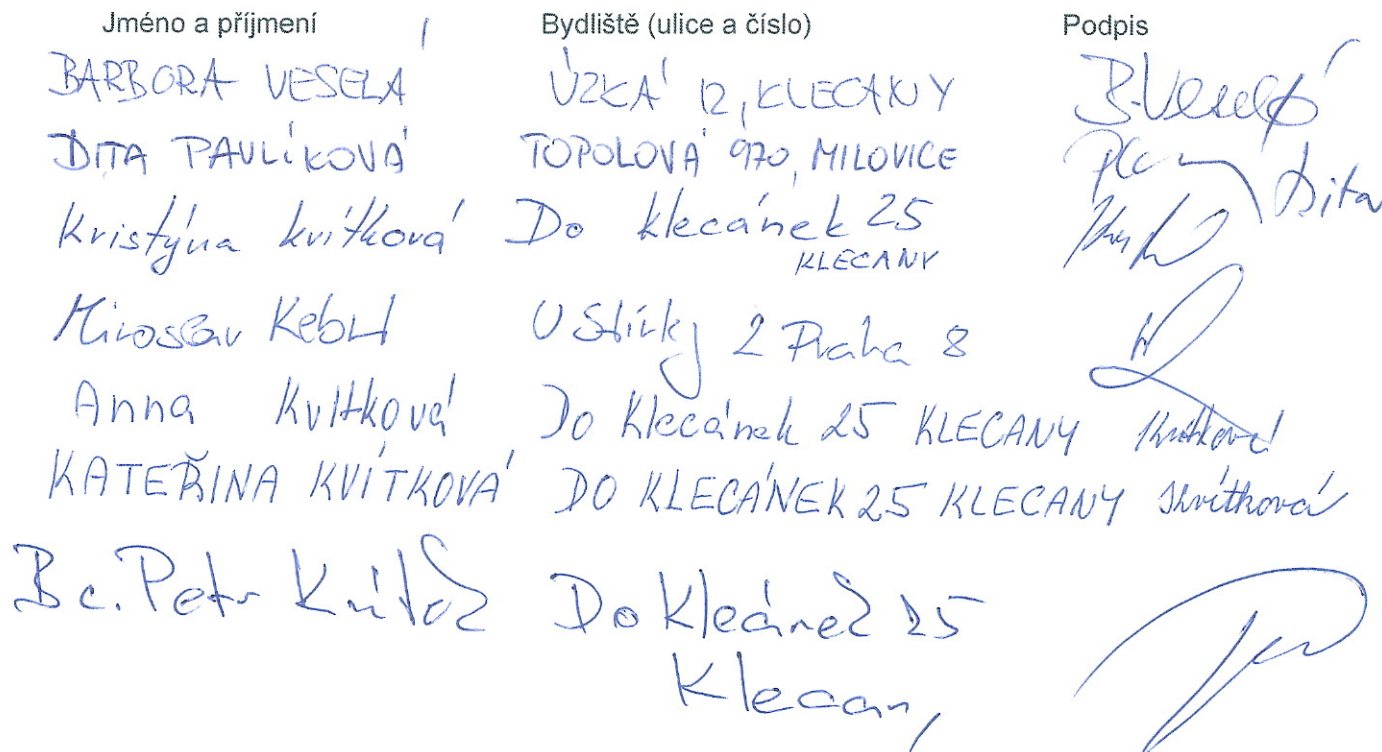 Jméno a příjmení Bydliště (ulice a číslo) Podpis
BARBORA VESELÁ ÚZKÁ 12, KLECANY B. Veselá
DITA PAVLÍKOVÁ TOPOLOVÁ 970, MILOVICE Dita
Kristýna kvítková Do klecánek 25
KLECANY
Miroslav U Slírky 2 Praha 8
Anna Kvítková Do Klecánek 25 KLECANY Kvítková
KATEŘINA KVÍTKOVÁ DO KLECÁNEK 25 KLECANY Kvítková
Bc. Petr Kvítek Do Klecánek 25
Klecany